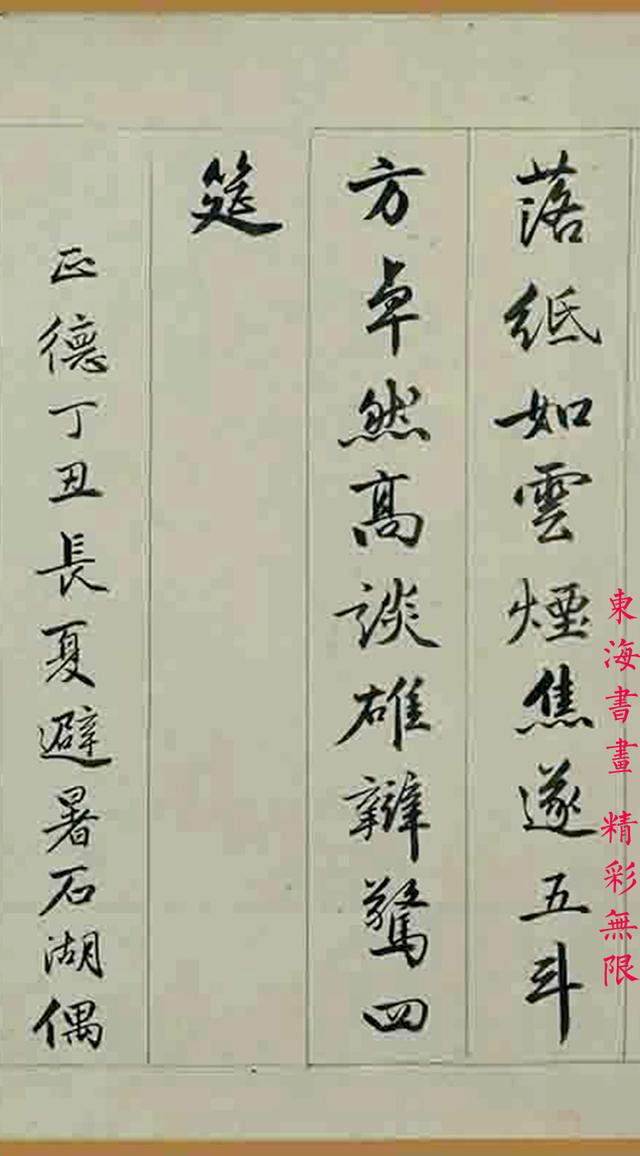 落紙如雲煙焦遂五斗
方卓然高談雄辯驚四
筵
正德丁丑長夏避暑石湖偶
東海書畫 精彩無限